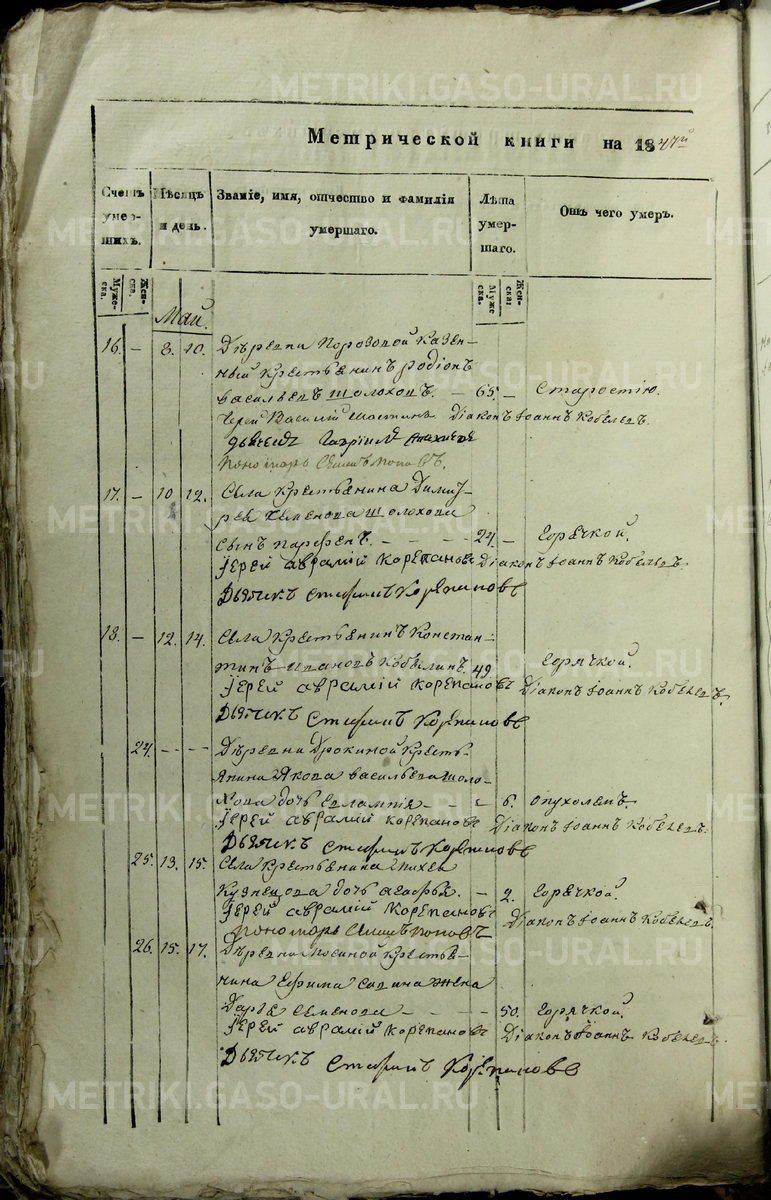 METRIKI.GASO-URAL.RU
Метрической книги на 1847й
Счетъ умер-шихъ.
Мѣсяцъ и день.
Званіе, имя, отчество и фамилія умершаго.
Лѣта умер-шаго.
Отъ чего умеръ.
Муже-ска.
Жен-ска.
Муже-ска.
Жен-ска.
Май.
16. – 8. 10. Деревни Порозовой Казен-
ный крестьянинъ родіонъ
васильевъ шолоховъ. – 65. – Старостію.
Іерей Василій Діаконъ Іоаннъ Кобелевъ.
дьячекъ Гавріилъ
Пономарь Симеонъ Поповъ.
17. – 10 12. Села Крестьянина Димит-
рея Семенова шолохова
сынъ парфенъ. – – – – 24. – Горячкой.
Іерей аврамій корепановъ Діаконъ Іоаннъ Кобелевъ.
Дьячекъ Стефанъ Корепановъ
18. – 12. 14. Села Крестьянинъ Констан-
тинъ ивановъ Кобылинъ. 49 Горячкой.
Іерей аврамій корепановъ Діаконъ Іоаннъ Кобелевъ.
Дьячекъ Стефанъ Корепановъ
24. – – – – Деревни Дрокиной Кресть-
янина Якова васильева шоло-
хова дочь евлампія – – – 6. опухолемъ.
Іерей аврамій корепановъ Діаконъ Іоаннъ Кобелевъ.
Дьячекъ Стефанъ Корепановъ
25. 13. 15. Села Крестьянина
Кузнецова дочь агафья. – 2. Горячкой.
Іерей аврамій корепановъ Діаконъ Іоаннъ Кобелевъ.
Пономарь Симеонъ Поповъ
26. 15. 17. Деревни Мосиной Крестья-
нина Ефима савина жена
Дарья Семенова – – – – 50. Горячкой.
Іерей аврамій корепановъ Діаконъ Іоаннъ Кобелевъ.
Дьячекъ Стефанъ Корепановъ